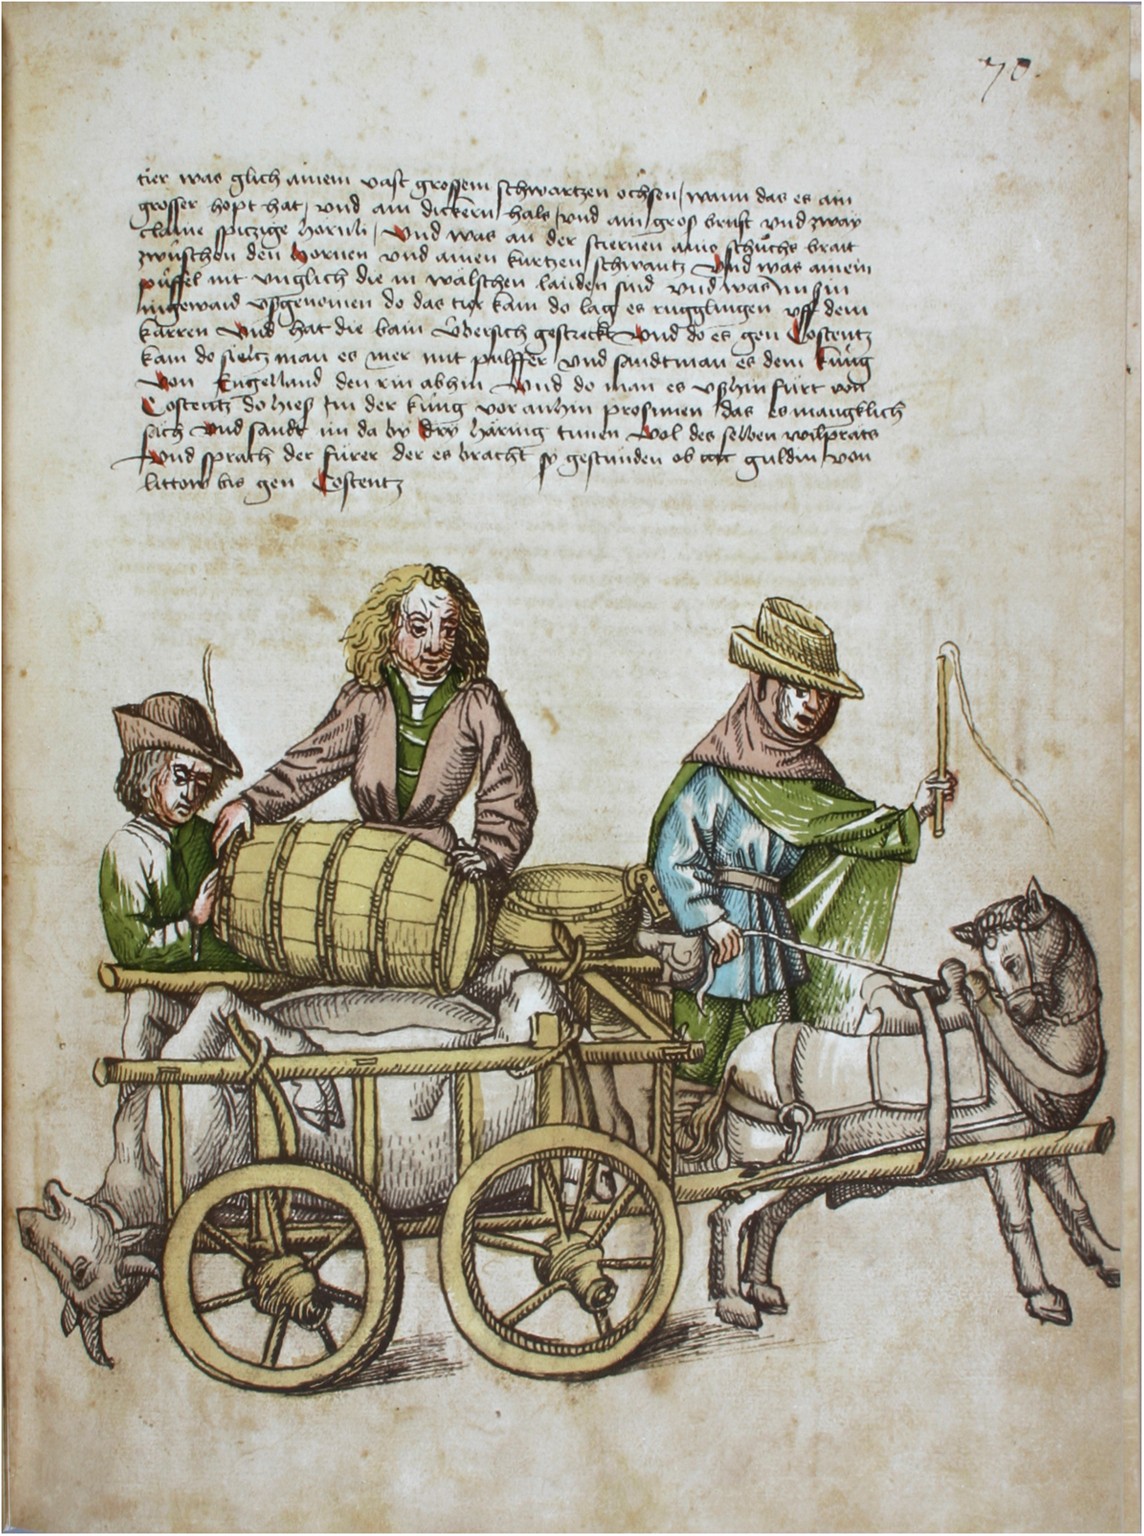 70
tier was glich ainem vast grossem schwartzen ochsen / wann das es ain
grosser hopt hat / und ain dickern hals / und ain gros brust und zway
claine spiczige hörnli / Und was an der stiernen ains schůchs brait
zwüschen den hornen und ainen kurtzen schwantz Und was ainem
püffel nit unglich die in wälschen landen sind und was im sin
ingewaid ussgenomen do das tier kam do lag es rugglingen uff dem
karren Und hat die bain übersich gestreckt Und do es gen Costentz
kam do sieltz man es mer mit pulffer und sandt man es dem küng
Von Engelland den rin abhin Und do man es usshin fürt von
Costentz do hiess im der küng vor anhin prosunen das es mangklich
säch Und sandt im da by dry häring tunen Vol des selben wilpräts
Und sprach der fürer der es bracht sy gestünden ob guldin von
littow bis gen Costentz